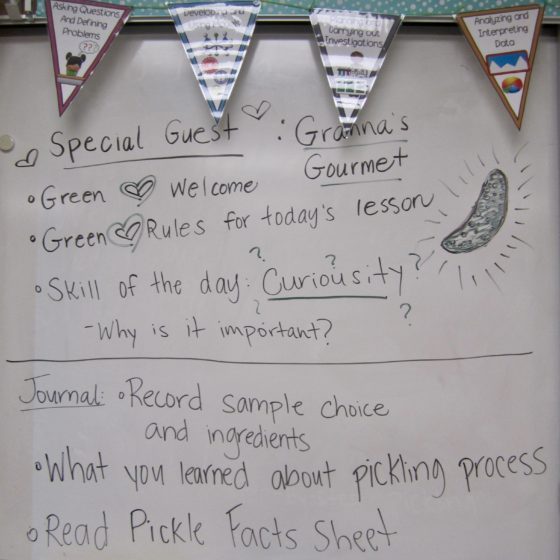 Asking Questions
And Defining
Problems
???
Developing and
Carrying Out
Investigations
Analyzing and
Interpreting
Data
Special Guest : Granna's
Gourmet
• Green Welcome
• Green Rules for today's lesson
• Skill of the day: Curiousity
- Why is it important?
? ? ? ? ?
Journal: • Record sample choice
and ingredients
• What you learned about pickling process
• Read Pickle Facts Sheet